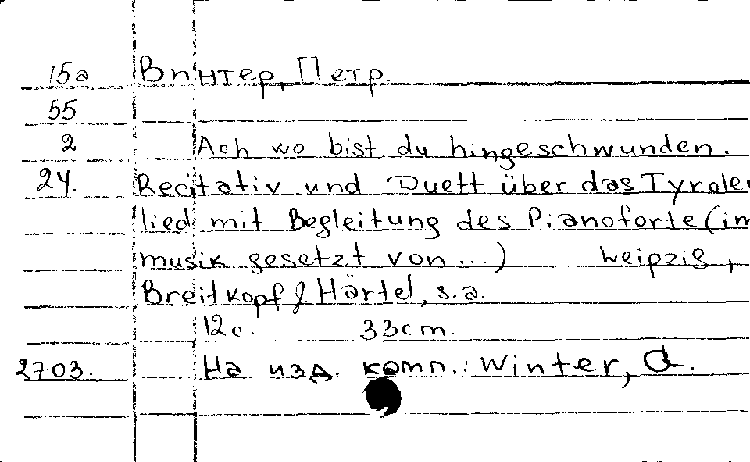 15a Винтер, Петр.
55
2 Ach wo bist du hingeschwunden.
24. Recitativ und Duett über das Tyroler
lied mit Begleitung des Pianoforte (in
musik gesetzt von...) Leipzig,
Breitkopf & Härtel, s.a.
12c. 33cm.
2703. На изд. комп.: Winter, A.